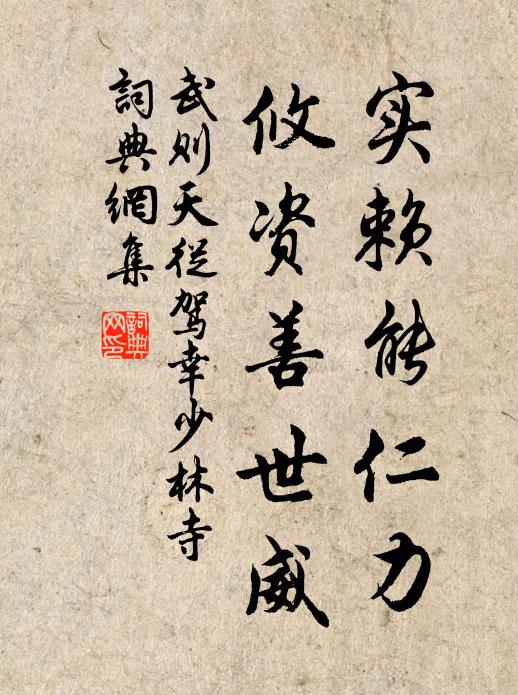 实赖能仁力
攸资善世威
武则天从驾幸少林寺
詞典網集
詞典
网印